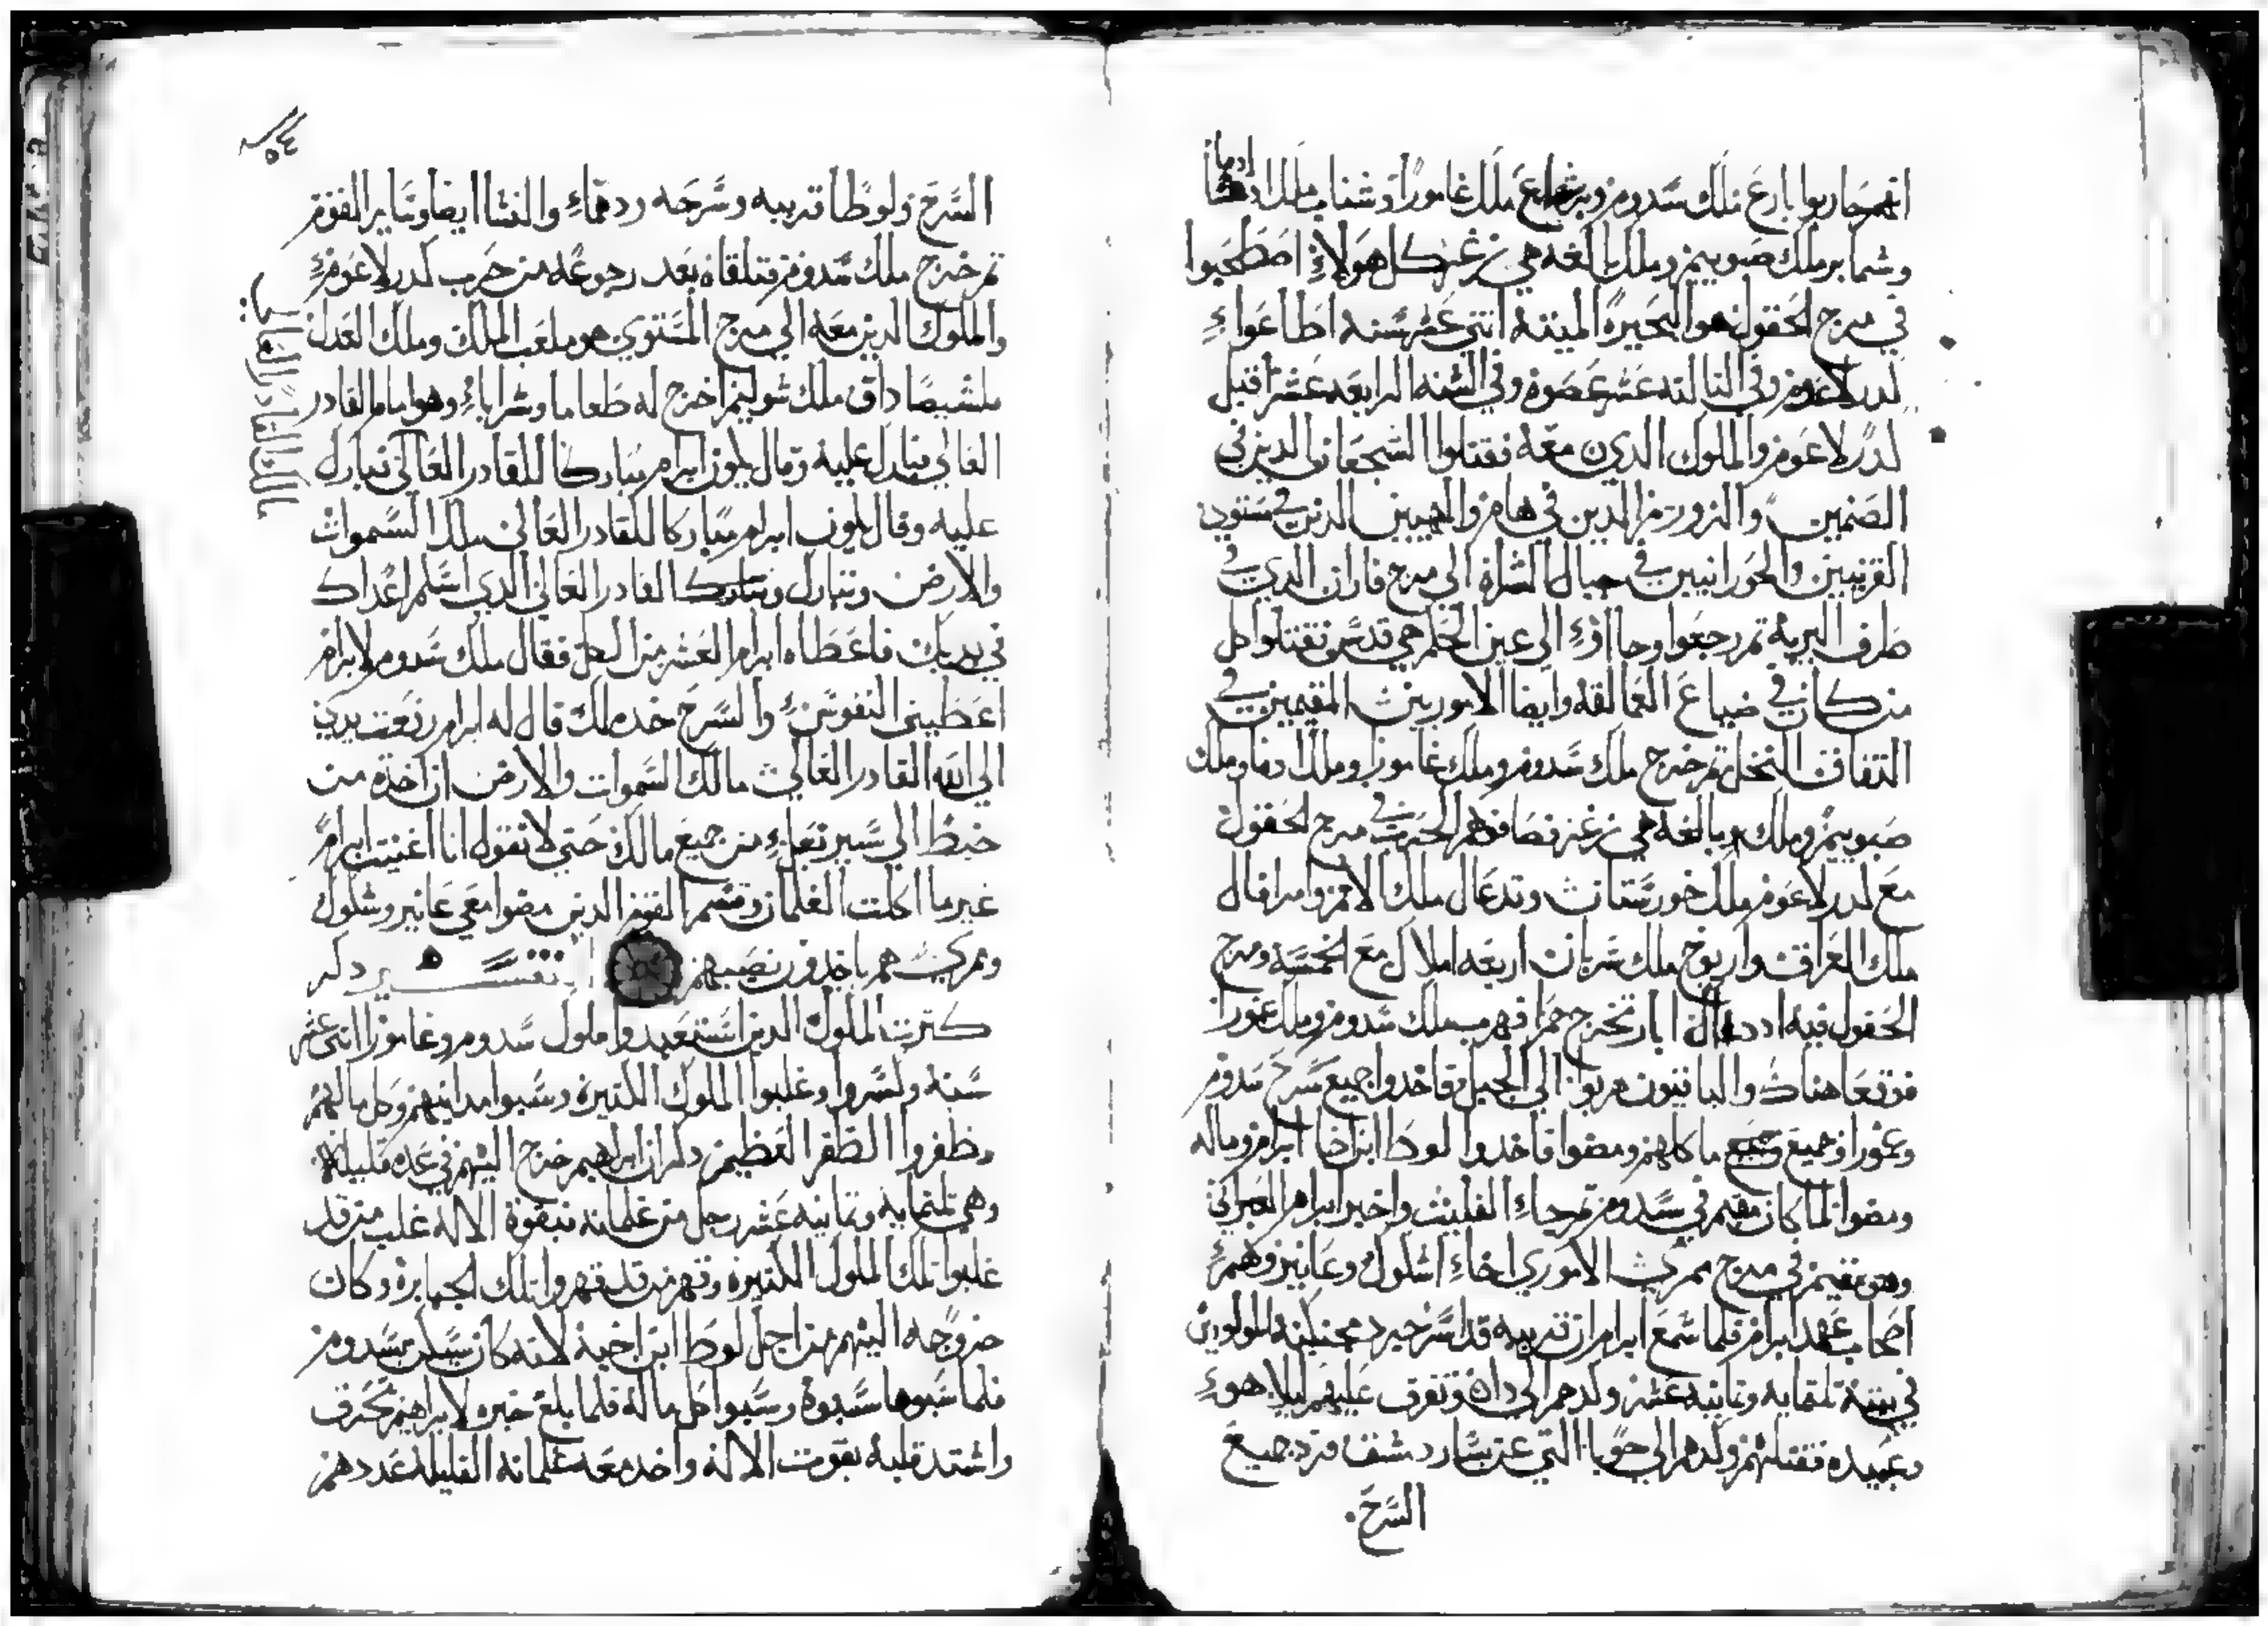 انهم حاربوا بارع ملك سدوم وبرشاع ملك غامورا وشناب ملك ادما
وشمابر ملك صبوييم وملك بالغه هي زغر كل هولاء اصطحبوا
في مرج الحقول هو البحيرة الميتة اثنتي عشر سنه اطاعوا
لدرلاعوم وفي الثالثه عشر عصوه وفي السنه الرابعه عشر اقبل
لدرلاعوم والملوك الدين معه فقتلوا الشجعان الدين في
الصنمين والزوزيم الدين في هام والهيبين الدين في مستوي
القريتين والحورانيين في جبال الشراة الى مرج فاران الدي في
طرف البرية تم رجعوا وجااوء الى عين الحكم هي قدس فقتلوا كل
من كان في ضياع العمالقه وايضا الاموريين المقيمين في
النخل تم خرج ملك سدوم وملك غامورا وملك ادما وملك
صبوييم وملك بالغه هي زغر فصافوهم الحرب في مرج الحقول
مع لدرلاعوم ملك خورستان وتدعال ملك الامم وامرافال
ملك العراق واريوخ ملك سريان اربعه املاك مع الخمسه ومرج
الحقول فيه اباَر تخرج حمرا فهرب ملك سدوم وملك عمورا
فوقعا هناك والباقيون هربوا الى الجبل فاخدوا جميع سرح سدوم
وعمورا وجميع ماكلهم ومضوا فاخدوا لوط ابن اخا ابرام وماله
ومضوا لما كان مقيم في سدوم تم جاء الفليت واخبر ابرام العبراني
وهو مقيم في مرج ممري الاموري اخاء اشلول وعانير وهم
اصحاب عهد ابرام فلما سمع ابرام ان قريبه قد اسر جرد محنكيه المولودين
في بيته تلتمايه وتمانيه عشر ولدهم الى دان وتفرق عليهم ليلا هو
وعبيده فقتلهم ولدهم الى حوبا التي عن يسار دمشق فرد جميع
السرح
٥٤
السرح ولوطا قريبه وسرحه ردهما والنسا ايضا وساير القوم
تم خرج ملك سدوم فتلقاه بعد رجوعه من حرب لدرلاعوم
والملوك الدين معه الي مرج المستوي هو ملعب الملك وملك العدل
ملشيصاداق ملك شوليم اخرج له طعاما وشرابا وهو امام القادر
العالي فبارك عليه وقال يكون ابرام مباركا للقادر العالي تبارك
عليه وقال يكون ابرام مباركا للقادر العالي ملك السموات
والارض وتبارك القادر العالي الدي اسلم اعداك
في يديك فاعطاه ابرام العشر من الكل فقال ملك سدوم لابرام
اعطيني النفوس والسرح خده لك قال له ابرام رفعت يدي
الي الله القادر العالي مالك السموات والارض ان اخده من
خيط الي سير نعل من جميع مالك حتي لا تقول انا اغنيت ابرام
غير ما اكلت الغلمان وقسم القوم الدين مضوا معي عانير وشلول
وممري هم ياخدون نصيبهم التفسير دكر
كترت الملوك الدين استعبدوا ملوك سدوم وغامورا اتنى عشر
سنه ولسروا وغلبوا الملوك الكتيرة وسبوا مداينهم وكل مالهم
وظفروا الظفر العظيم دكر ان ابراهيم خرج اليهم في عده قليله
وهي تلتمايه وتمانيه عشر رجل من غلمانه فبقوة الاله غلب من قد
غلبوا تلك الملوك الكتيرة وقهر من قد قهروا تلك الجبابره وكان
خروجه اليهم من اجل لوط ابن اخيه لانه كان يسكن بسدوم
فلما سبوها سبوه وسبوا كل ماله فلما بلغ خبره لابراهيم تحرق
واشتد قلبه بقوت الاله واخد معه غلمانه القليله عددهم